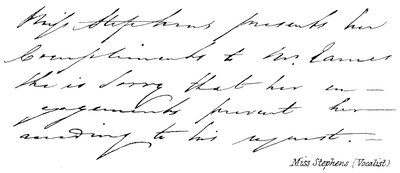 Miss Stephens presents her
Compliments to Mr. James
She is Sorry that her en-
gagements prevent her
acceding to his request. —
Miss Stephens (Vocalist)